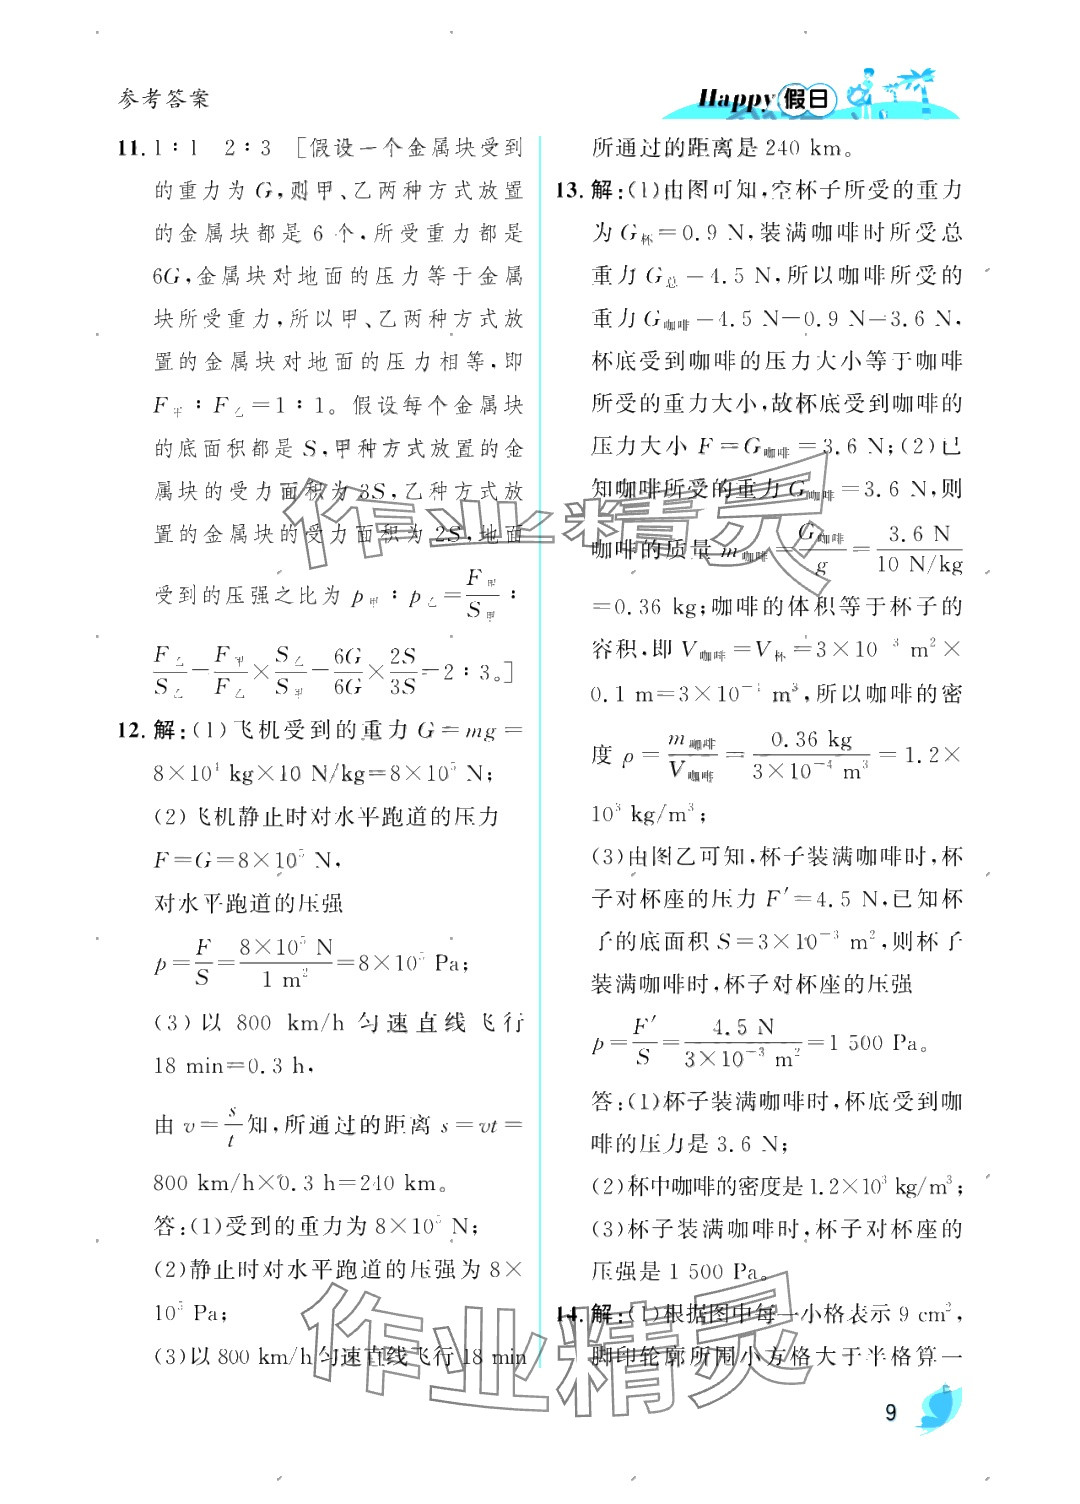 参考答案
Happy假日
11. 1∶1　2∶3　[假设一个金属块受到
的重力为 G,则甲、乙两种方式放置
的金属块都是 6 个,所受重力都是
6G,金属块对地面的压力等于金属
块所受重力,所以甲、乙两种方式放
置的金属块对地面的压力相等,即
F甲∶F乙=1∶1。假设每个金属块
的底面积都是 S,甲种方式放置的金
属块的受力面积为 3S,乙种方式放
置的金属块的受力面积为 2S,地面
受到的压强之比为 p甲∶p乙=F甲/S甲∶
F乙/S乙=F甲/F乙×S乙/S甲=6G/6G×2S/3S=2∶3。]
12. 解:(1)飞机受到的重力 G=mg=
8×10⁴ kg×10 N/kg=8×10⁵ N;
(2)飞机静止时对水平跑道的压力
F=G=8×10⁵ N,
对水平跑道的压强
p=F/S=8×10⁵ N/1 m²=8×10⁵ Pa;
(3)以 800 km/h 匀速直线飞行
18 min=0.3 h,
由 v=s/t知,所通过的距离 s=vt=
800 km/h×0.3 h=240 km。
答:(1)受到的重力为 8×10⁵ N;
(2)静止时对水平跑道的压强为 8×
10⁵ Pa;
(3)以 800 km/h 匀速直线飞行 18 min
所通过的距离是 240 km。
13. 解:(1)由图可知,空杯子所受的重力
为 G杯=0.9 N,装满咖啡时所受总
重力 G总=4.5 N,所以咖啡所受的
重力 G咖啡=4.5 N-0.9 N=3.6 N,
杯底受到咖啡的压力大小等于咖啡
所受的重力大小,故杯底受到咖啡的
压力大小 F=G咖啡=3.6 N;(2)已
知咖啡所受的重力 G咖啡=3.6 N,则
咖啡的质量 m咖啡=G咖啡/g=3.6 N/10 N/kg
=0.36 kg;咖啡的体积等于杯子的
容积,即 V咖啡=V杯=3×10⁻³ m²×
0.1 m=3×10⁻⁴ m³,所以咖啡的密
度 ρ=m咖啡/V咖啡=0.36 kg/3×10⁻⁴ m³=1.2×
10³ kg/m³;
(3)由图乙可知,杯子装满咖啡时,杯
子对杯座的压力 F′=4.5 N,已知杯
子的底面积 S=3×10⁻³ m²,则杯子
装满咖啡时,杯子对杯座的压强
p=F′/S=4.5 N/3×10⁻³ m²=1 500 Pa。
答:(1)杯子装满咖啡时,杯底受到咖
啡的压力是 3.6 N;
(2)杯中咖啡的密度是 1.2×10³ kg/m³;
(3)杯子装满咖啡时,杯子对杯座的
压强是 1 500 Pa。
14. 解:(1)根据图中每一小格表示 9 cm²,
脚印轮廓所围小方格大于半格算一
作业精灵
作业精灵
9